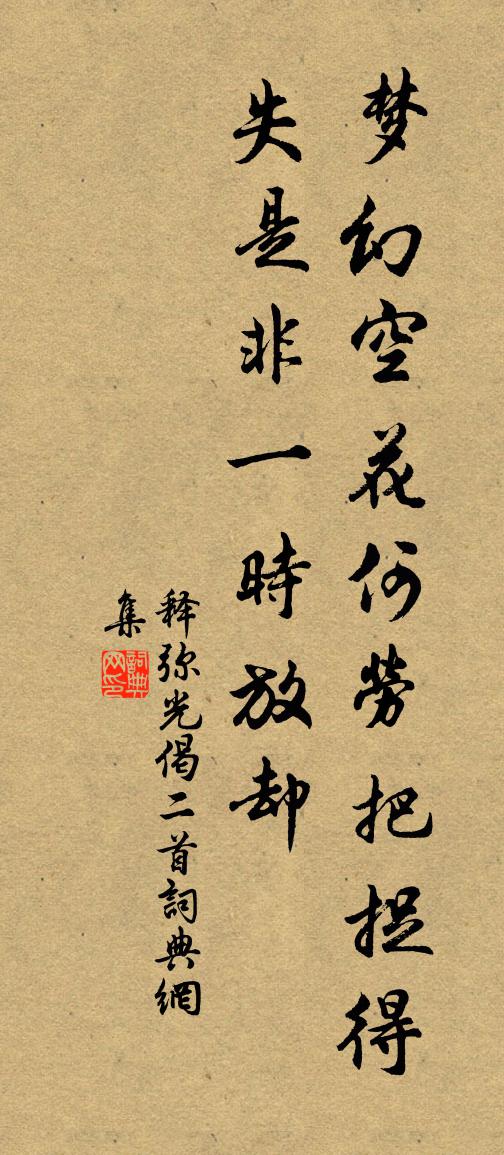 梦幻空花何勞把捉得
失是非一時放却
释弥光偈二首詞典網
集
詞典网印